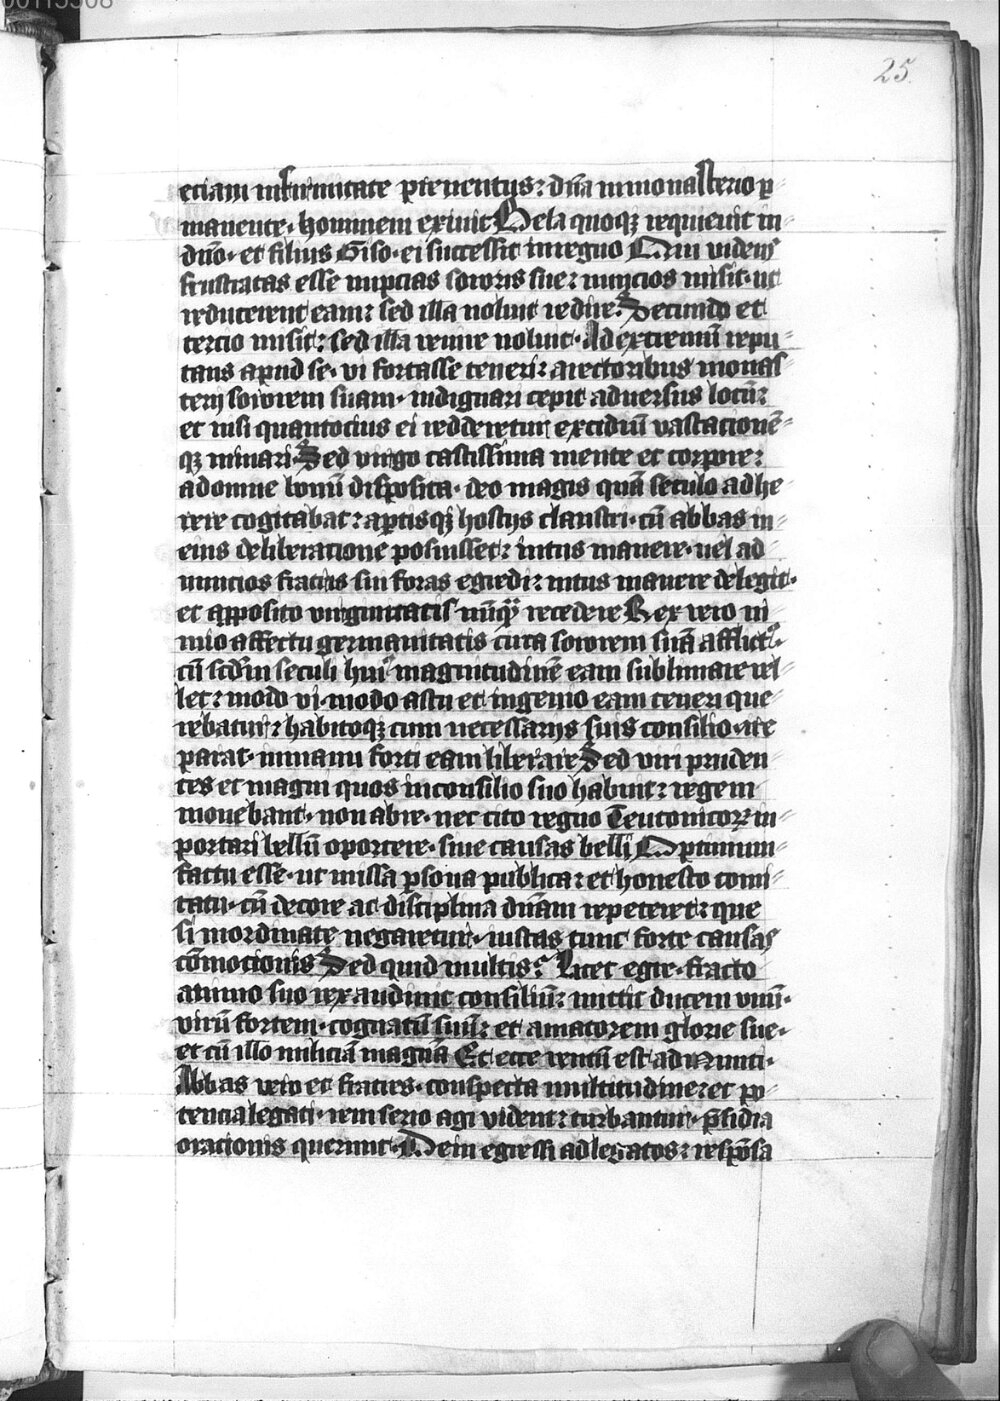 00115308
25.
eciam infirmitate preuentus: dn̄a in monasterio p̱
manente · hominem exiuit Bela quoqꝫ requieuit in
dn̄o · et filius Giso · ei successit in regno Qui videns
frustratas esse nupcias sororis sue: nuncios misit · ut
reducerent eam: sed illa noluit redire. Secundo et
tercio misit: sed illa uenire noluit · Ad extremū repu
tans apud se · vi fortasse teneri: a rectoribus monas
terij sororem suam · indignari cepit aduersus locū:
et nisi quantocius ei redderetur excidiū vastacionē
qꝫ minari · Sed virgo castissima mente et corpore:
ad omne bonū disposita · deo magis quā seculo adhe
rere cogitabat: aptisqꝫ hostijs claustri · cū abbas in
eius deliberatione posuisset: intus manere · uel ad
nuncios fratris sui foras egredi: intus manere delegit ·
et apposito virginitatis nūqͣ recedere Rex vero ni
mio affectu germanitatis circa sororem suā afflictꝰ ·
cū scd̄m seculi huiꝰ magnitudinē eam sublimare vel
let: modo vi · modo astu et ingenio eam teneri que
rebatur: habitoqꝫ cum necessarijs suis consilio · ire
parat · in manu forti eam liberare Sed viri pruden
tes et magni quos in consilio suo habuit: regem
mouebant · non abire · nec cito regno Teutonicoꝝ in
portari bellū oportere · sine causas belli Optimum
factu esse · ut missa p̱sona publica: et honesto comi
tatu · cū decore ac disciplina dn̄am repeteret: que
si inordinate negaretur · iustas tunc forte causas
cōmotionis Sed quid multis? Licet egre · fracto
animo suo rex audiuit consiliū: mittit ducem vnū ·
virū fortem · cognatū suū: et amatorem glorie sue ·
et cū illo miliciā magnā Et ecce ventū est ad Nunti ·
Abbas vero et fratres · conspecta multitudine: et po
tencia legati · rem serio agi vident: turbantur · p̄sidia
orationis querunt · Dein egressi ad legatos: respōsa